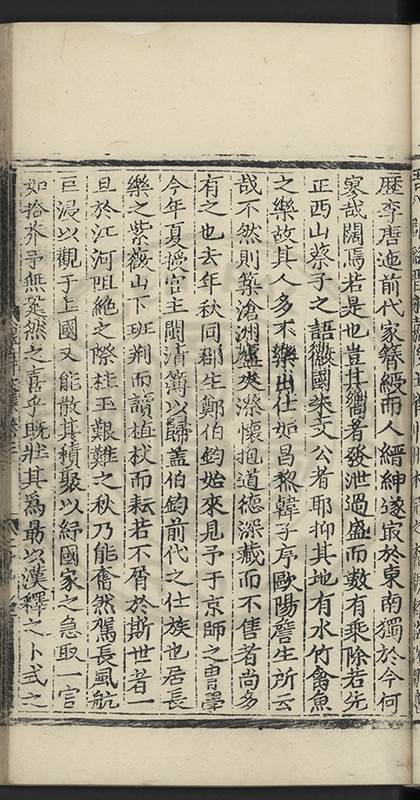 歷李唐迄前代家簪纓而人縉紳遂㝡於東南獨於今何
寥哉闊焉若是也豈其嚮者發泄過盛而數有乗除若先
正西山蔡子之語徽國朱文公者耶抑其地有水竹禽魚
之樂故其人多不樂出仕如昌黎韓子序歐陽詹生所云
哉不然則築滄洲廬夾漈懷抱道德深蔵而不售者尚多
有之也去年秋同郡生鄭伯鈞始來見予于京師之胄學
今年夏授官主閩清簿以歸盖伯鈞前代之仕族也居長
樂之紫薇山下班荆而讀植杖而耘若不屑於斯世者一
旦於江河阻絶之際桂玉艱難之秋乃能奮然駕長風航
巨浸以觀于上國又能散其積聚以紓國家之急取一官
如拾芥乎無莞然之喜乎既壯其爲最以漢釋之卜式之